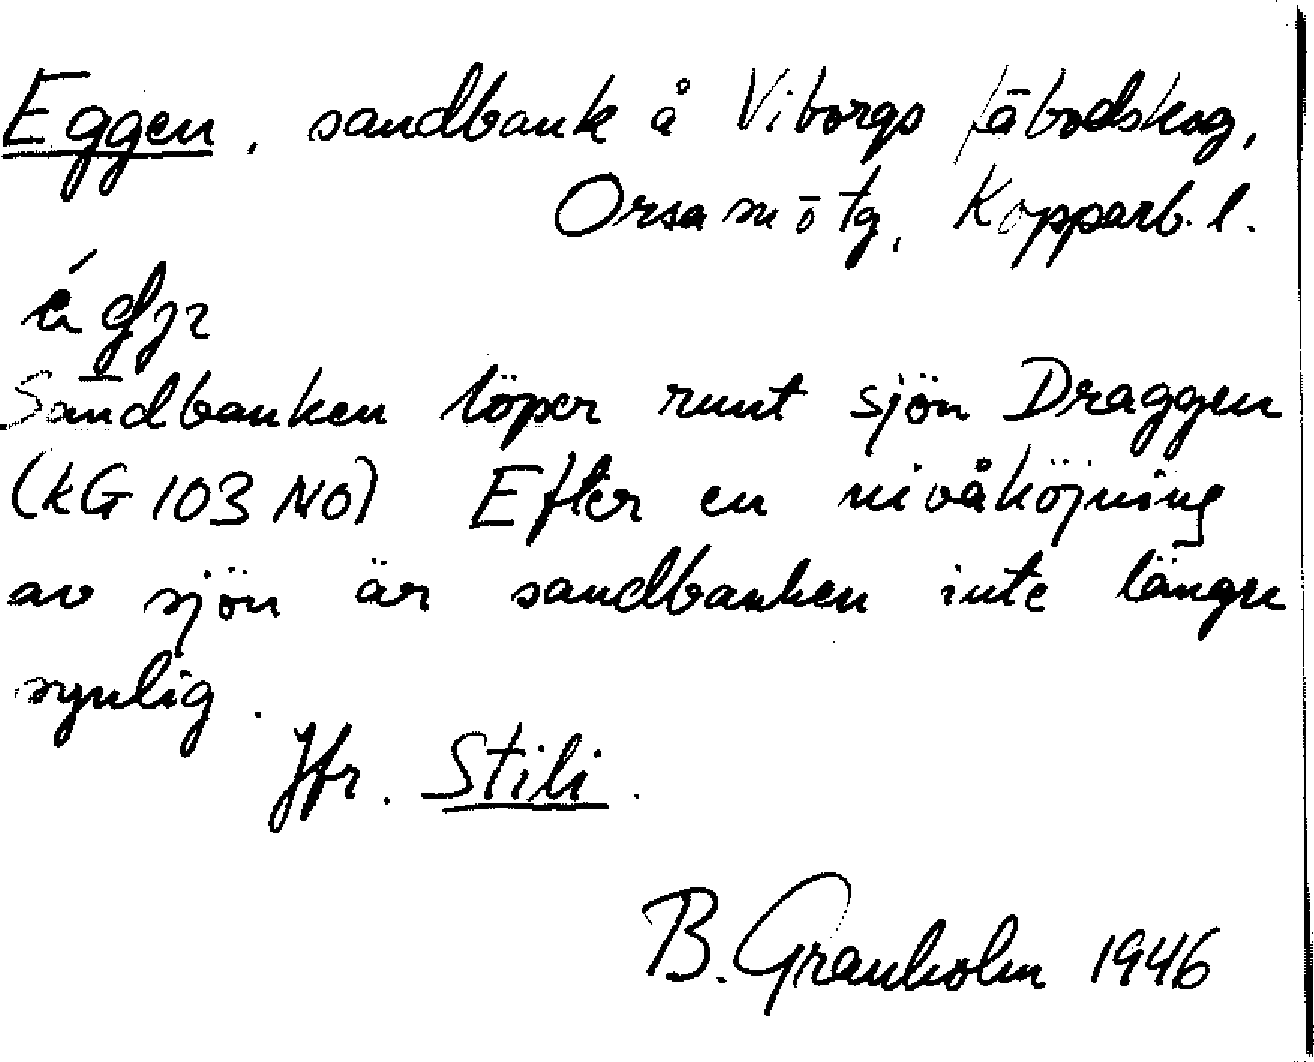 Eggen, sandbank å Viborgs fäbodskog,
Orsa mōtg, Kopparb. l.
Sandbanken löper runt sjön Draggen
(KG 103 NO) Efter en nivåhöjning
av sjön är sandbanken inte längre
synlig.
Jfr. Stili.
B. Granholm 1946